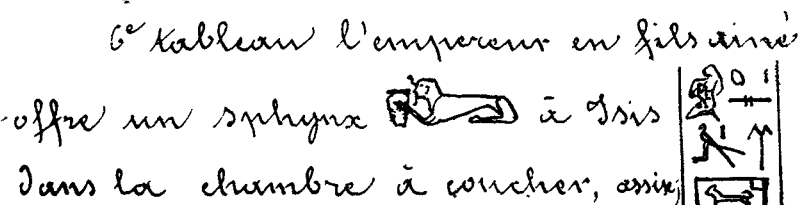 6e tableau l'empereur en fils ainé
offre un sphynx à Isis
dans la chambre à coucher, assise,